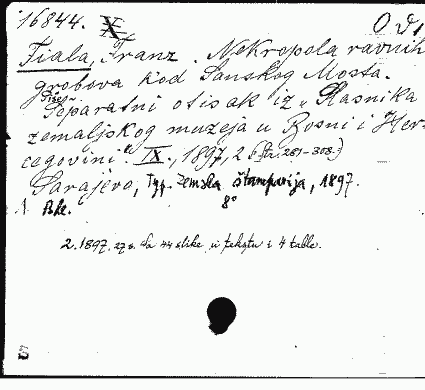 16844. X
Fiala, Franz. Nekropola ravnih
grobova kod Sanskog Mosta.
Separatni otisak iz „Glasnika
zemaljskog muzeja u Bosni i Her-
cegovini." IX., 1897, 2. (Str. 281-308.)
Sarajevo, Typ. Zemska štamparija, 1897.
8°
2. 1897. sa slike u tekstu i 4 table.